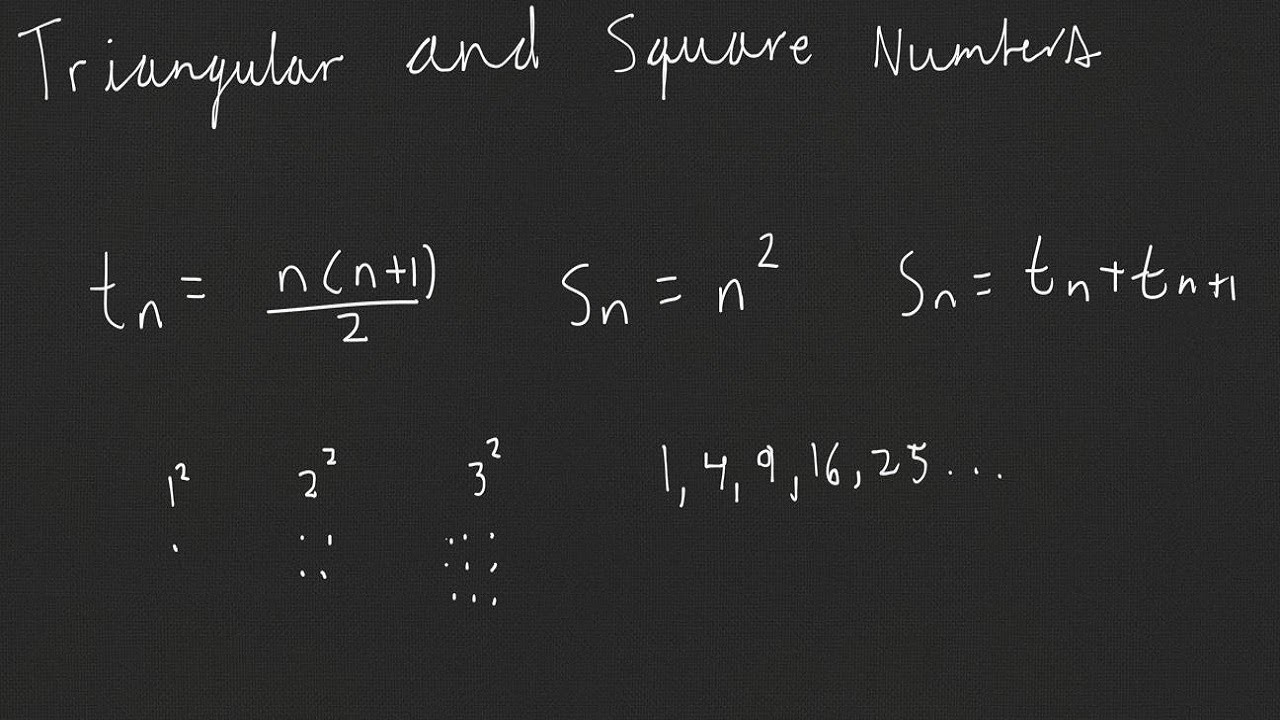 Triangular and Square Numbers
tₙ = n(n+1)/2 Sₙ = n² Sₙ = tₙ + tₙ₊₁
1² 2² 3² 1, 4, 9, 16, 25 ...